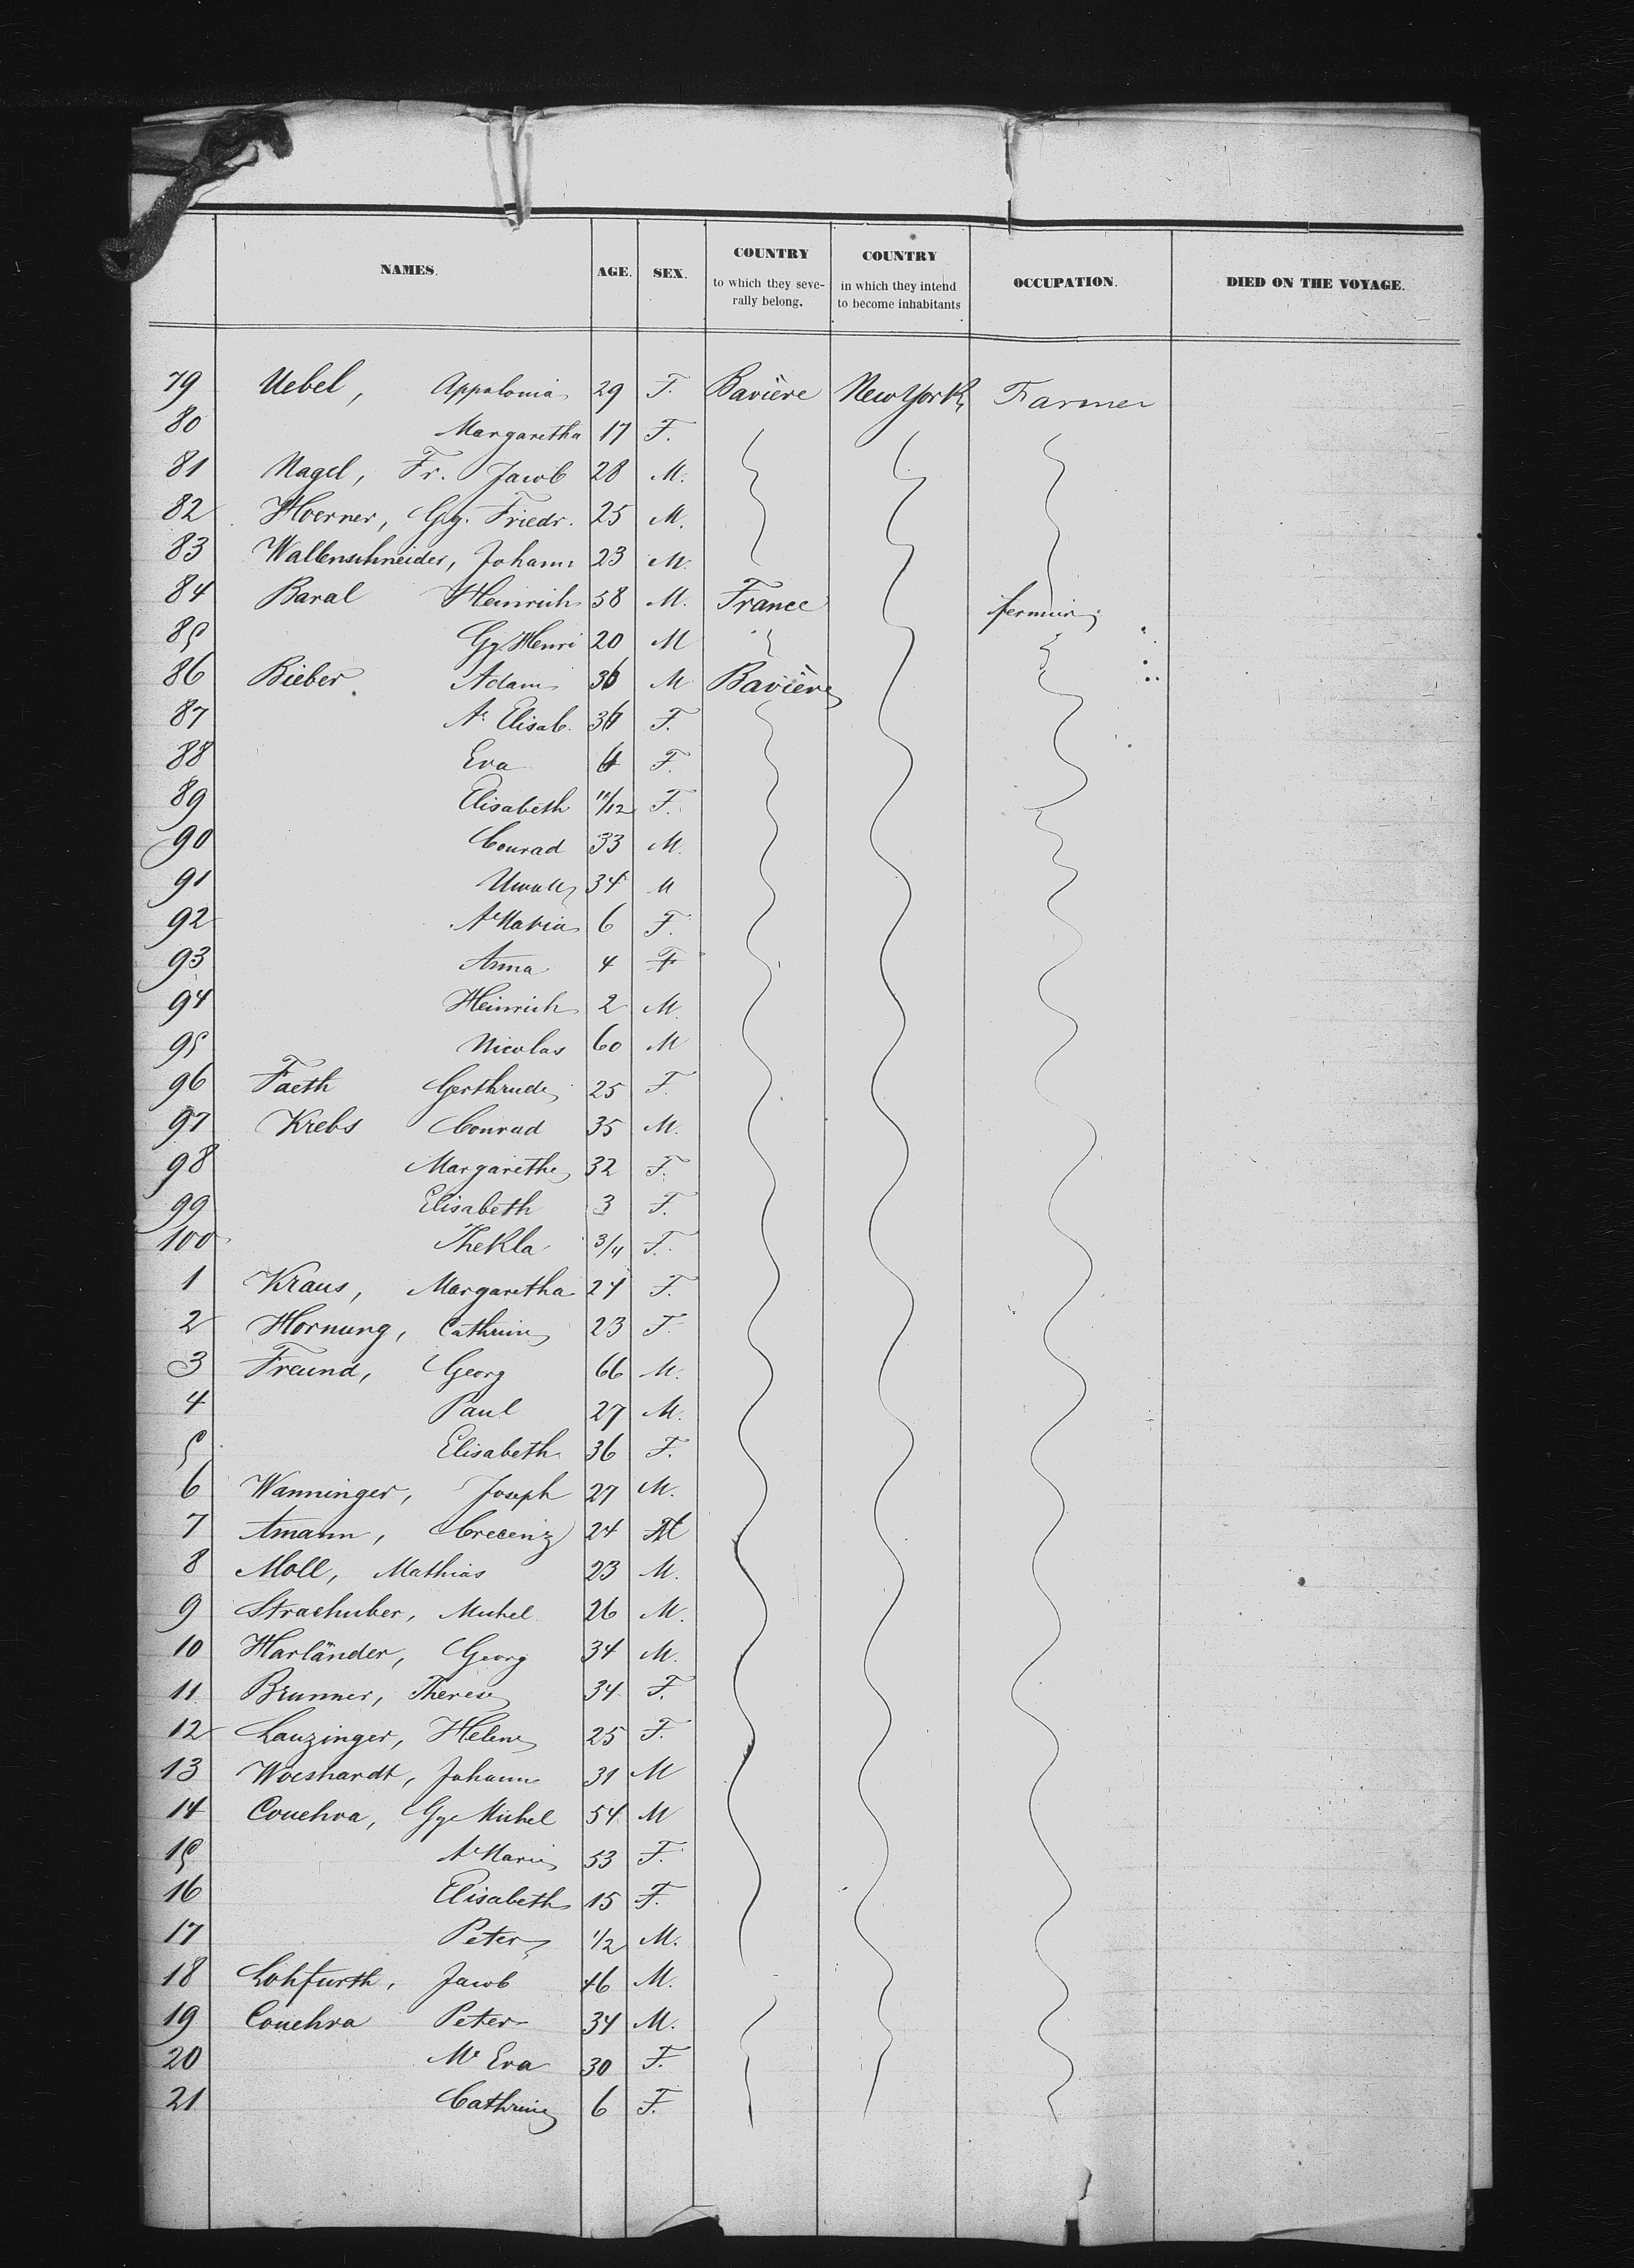 NAMES. AGE. SEX. COUNTRY to which they seve- rally belong. COUNTRY in which they intend to become inhabitants OCCUPATION. DIED ON THE VOYAGE.
79 Uebel, Appalonia 29 F. Bavière New York Farmer
80 Margaretha 17 F.
81 Nagel, Fr. Jacob 28 M.
82 Hoerner, Gg. Friedr. 25 M.
83 Wallenschneider, Johann 23 M.
84 Baral Heinrich 58 M. France
85 Gg. Henri 20 M
86 Bieber Adam 36 M Bavière
87 Ae. Elisab. 36 F.
88 Eva F.
89 Elisabeth 11/12 F.
90 Conrad 33 M.
91 34 M
92 Ae Maria 6 F.
93 Anna 4 F
94 Heinrich 2 M.
95 Nicolas 60 M
96 Faeth Gerthrude 25 F.
97 Krebs Conrad 35 M.
98 Margarethe 32 F.
99 Elisabeth 3 F.
100 Thekla 3/4 F.
1 Kraus, Margaretha 24 F.
2 Hornung, Cathrine 23 F.
3 Freund, Georg 66 M.
4 Paul 27 M.
5 Elisabeth 36 F.
6 Wanninger, Joseph 27 M.
7 Amann, Crecenz 24
8 Moll, Mathias 23 M.
9 Strachuber, Michel 26 M.
10 Harländer, Georg 34 M.
11 Brunner, Therese 34 F.
12 Lanzinger, Helene 25 F.
13 Woeshardt, Johann 31 M
14 Couehva, Gge Michel 54 M
15 Ae Marie 53 F.
16 Elisabeth 15 F.
17 Peter 1/2 M.
18 Lohfurth, Jacob 46 M.
19 Couehva Peter 34 M.
20 Me Eva 30 F.
21 Cathrine 6 F.